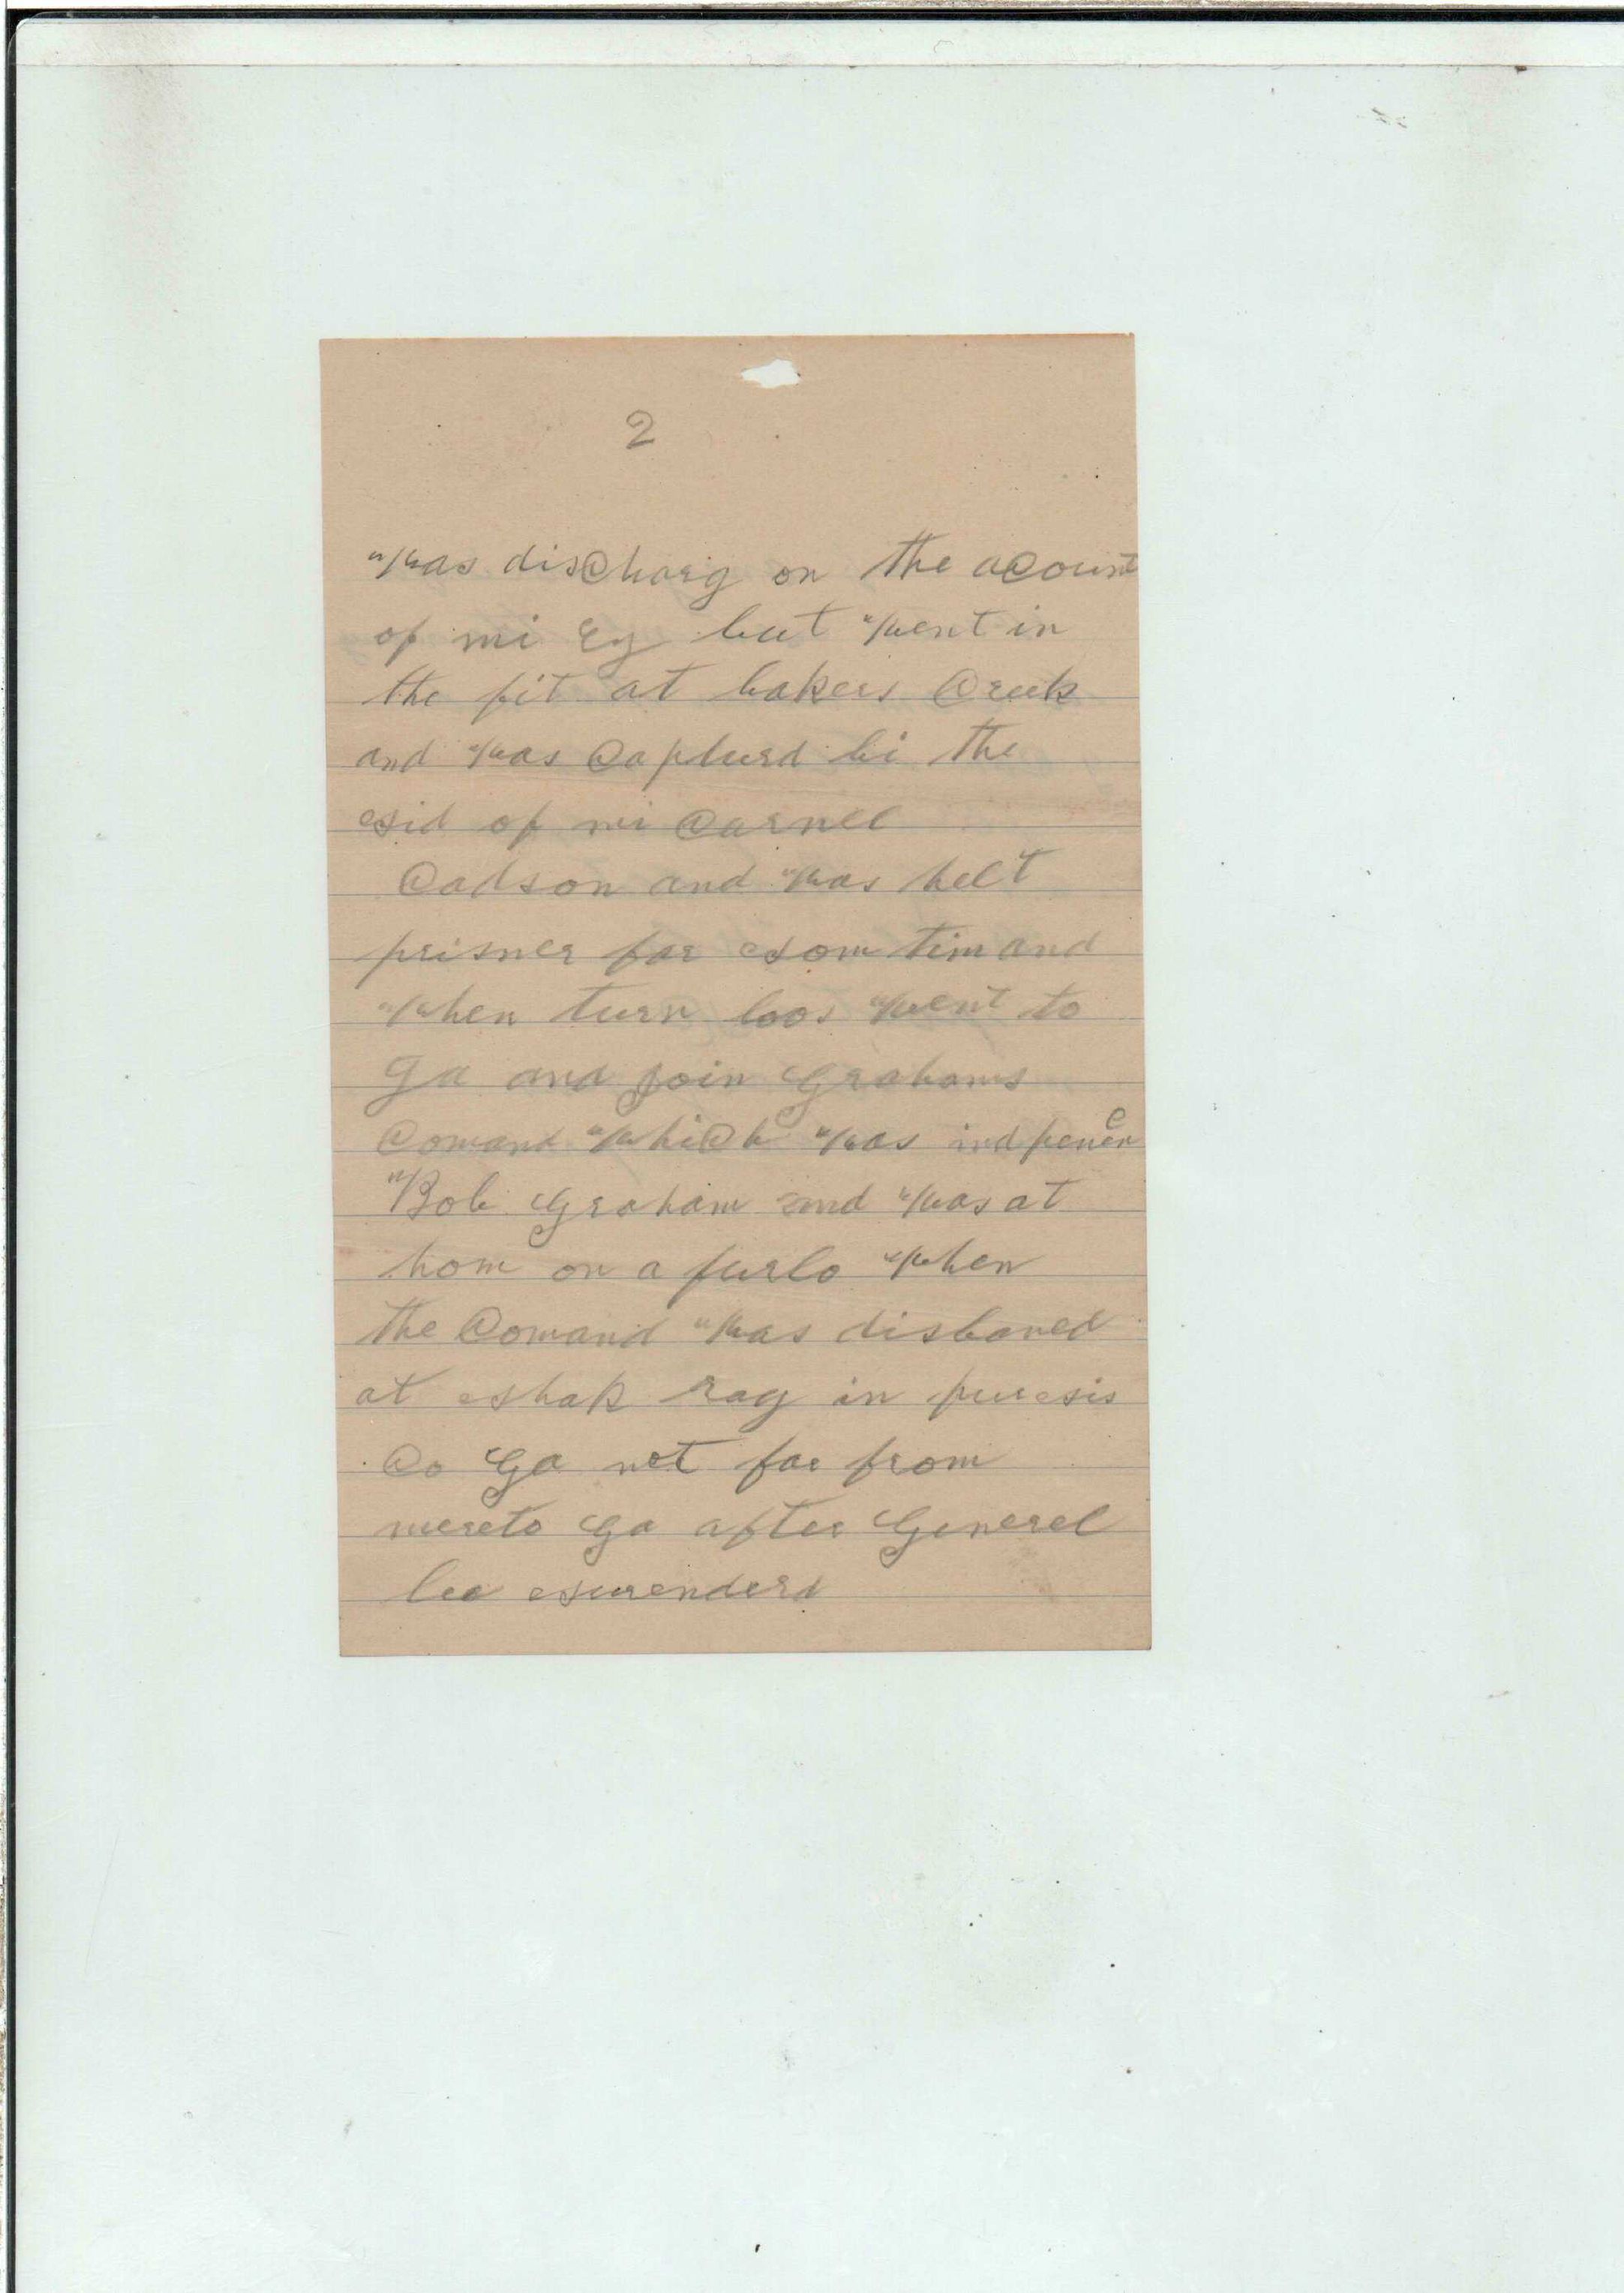 2
was discharg on the acount
of mi Ey but went in
the fit at bakers Creek
and was Capturd bi the
sid of mi Carnel
Cadson and was helt
prisner for som tim and
when turn loos went to
ga and join Grahams
Comand which was indpenen
Bob Graham and was at
hom on a furlo when
the Comand was disbaned
at shak rag in
Co Ga not far from
Ga after Generel
lee surenderd